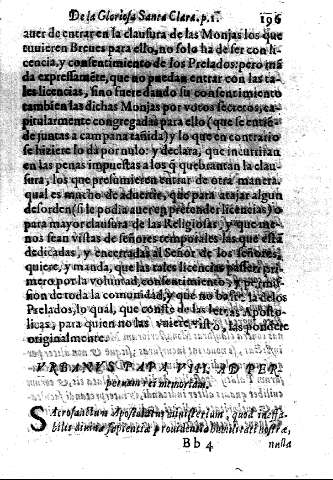 De la Gloriosa Santa Clara. p. 1. 196
auer de entrar en la clausura de las Monjas los que
tuuieren Breues para ello, no solo ha de ser con li-
cencia, y consentimiento de los Prelados: pero mã
da expressamẽte, que no puedan entrar con las ta-
les licencias, sino fuere dando su consentimiento
tambien las dichas Monjas por votos secretos, ca-
pitularmente congregadas para ello (que se entiẽ-
de juntas a campana tañida) y lo que en contrario
se hiziere lo da por nulo: y declara, que incurrirán
en las penas impuestas a los q̃ quebrantan la clau-
sura, los que presumieren entrar de otra manera.
qual es mucho de aduertir, que para atajar algun
desorden (si le podia auer en pretender licencias) o
para mayor clausura de las Religiosas, y que me-
nos sean vistas de señores temporales las que està
dedicadas, y encerradas al Señor de los señores,
quiere, y manda, que las tales licencias passen pri-
mero por la voluntad, consentimiento, y permis-
sion de toda la comunidad, y que no baste la de los
Prelados, lo qual, que conste de las letras Aposto-
licas, para quien no las vuiere visto, las pondrè
originalmente.
VRBANVS PAPA VIII. AD PER-
petuam rei memoriam.
SAcrosanctum Apostolatus ministerium, quod ineffa-
bilis diuinæ sapientiæ prouidentia humilitati nostræ,
Bb 4 nulla